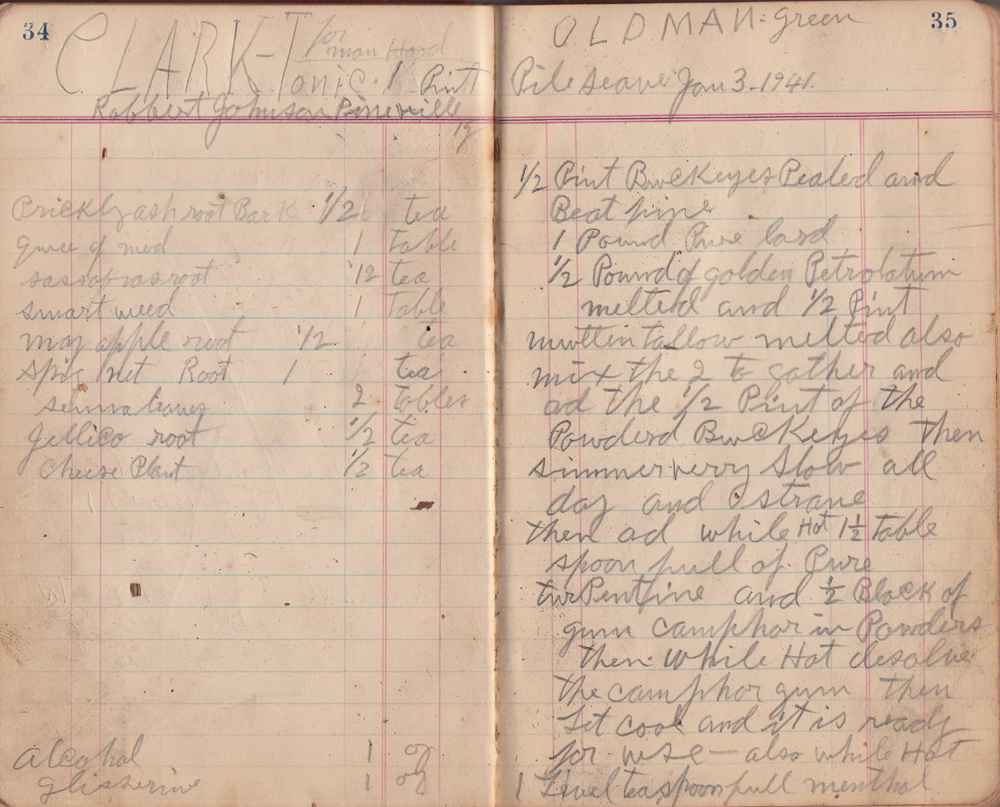 34
CLARK-Tonic. 1 Pint
for man Hood
Robbert Johnson Pineville
Prickly ash root Bark 1/2 tea
1 Table
sassafras root 1/2 tea
smart weed 1 Table
may apple root 1/2 tea
spic net Root 1 tea
senna leaves 2 tables
Jellico root 1/2 tea
Cheese Plant 1/2 tea
Alcohol 1 oz
Glisserine 1 oz
35
OLD MAN: Green
Pile seave Jan 3-1941.
1/2 Pint Buckeyes Pealed and
Beat fine
1 Pound Pure lard
1/2 Pound of golden Petrolatum
melted and 1/2 Pint
muttin tallow melted also
mix the 2 to gather and
ad the 1/2 Pint of the
Powderd Buckeyes then
simmer verry slow all
day and strane
then ad while Hot 1 1/2 table
spoon full of Pure
turPentine and 1/2 Block of
gum camphor in Powders
then while Hot desolve
the camphor gum then
Let cool and it is ready
for use - also while Hot
1 Level teaspoon full menthol